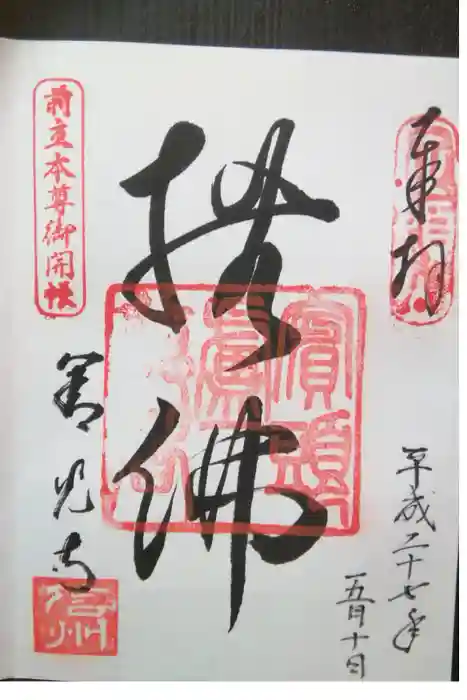 奉拝
平成二十七年
五月十日
撫佛
賓頭
前立本尊御開帳
善光寺
信州